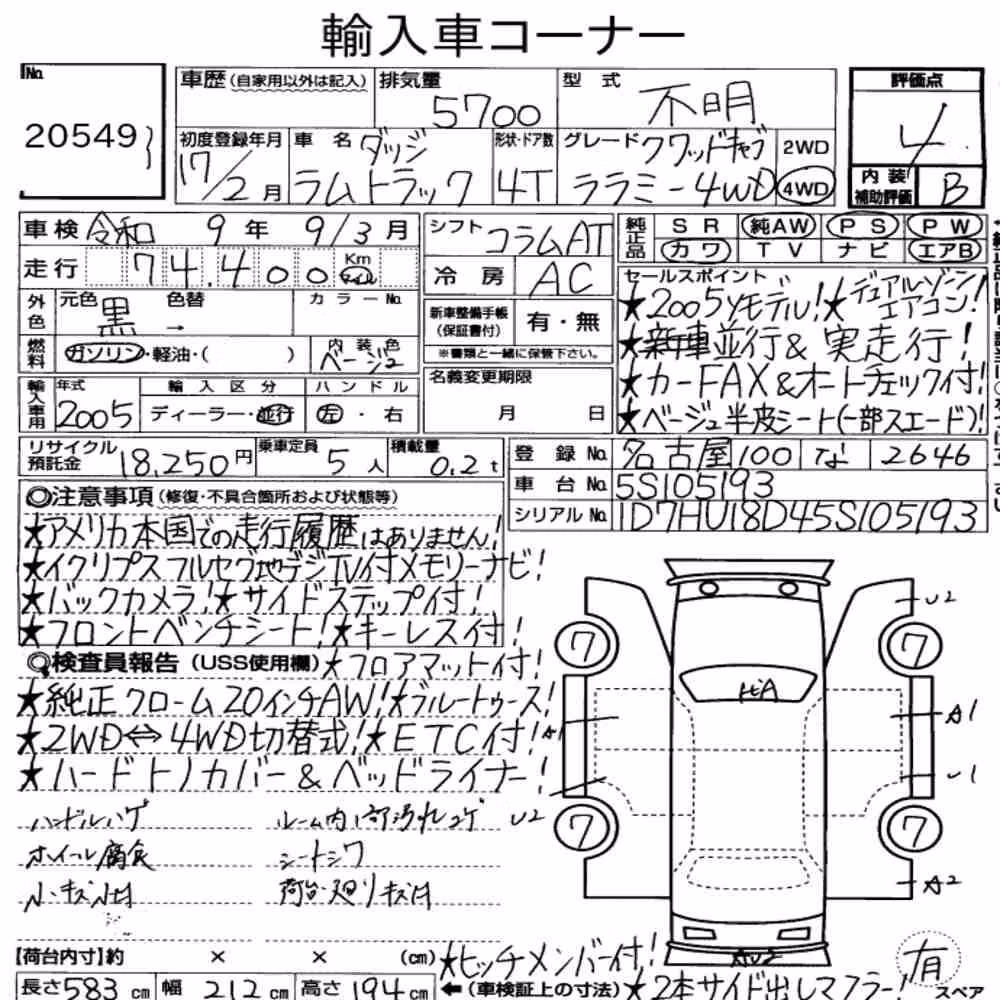 輸入車コーナー
No.
20549
車歴(自家用以外は記入)
排気量
5700
型式
不明
評価点
4
初度登録年月
17/2月
車名
ダッジ
ラムトラック
形状・ドア数
4T
グレード
クワッドキャブ
ララミー4WD
2WD
4WD
内装
補助評価
B
車検 令和 9年 9/3月
走行 74,400 Km マイル
シフト コラムAT
冷房 AC
純正品
SR 純AW PS PW
カワ TV ナビ エアB
外色
元色 黒 →
色替
カラーNo.
燃料
ガソリン・軽油・( )
内装色
ベージュ
新車整備手帳
(保証書付)
有・無
※書類と一緒に保管下さい。
セールスポイント
★2005yモデル!★デュアルゾーンエアコン!
★新車並行&実走行!
★カーFAX&オートチェック付!
★ベージュ半皮シート(一部スエード)!
輸入車用
年式
2005
輸入区分
ディーラー・並行
ハンドル
左・右
名義変更期限
月 日
リサイクル預託金
18,250円
乗車定員
5人
積載量
0.2t
登録No. 名古屋 100 な 2646
車台No. 5S105193
シリアルNo. 1D7HU18D45S105193
◎注意事項(修復・不具合箇所および状態等)
★アメリカ本国での走行履歴はありません!
★イクリプスフルセグ地デジTV付メモリーナビ!
★バックカメラ!★サイドステップ付!
★フロントベンチシート!★キーレス付!
◎検査員報告(USS使用欄)★フロアマット付!
★純正クローム20インチAW!★ブルートゥース!
★2WD⇔4WD切替式!★ETC付!
★ハードトノカバー&ベッドライナー!
ハンドルハゲ
ルーム内部汚れコゲ
ホイール腐食
シートシワ
小キズ凹
荷台廻りキズ凹
U2
7
7
7
7
A1
A1
U1
U2
A2
【荷台内寸】約 × × (cm)
★ヒッチメンバー付!
長さ583cm 幅212cm 高さ194cm
←(車検証上の寸法)★2本サイド出しマフラー!
有
スペア